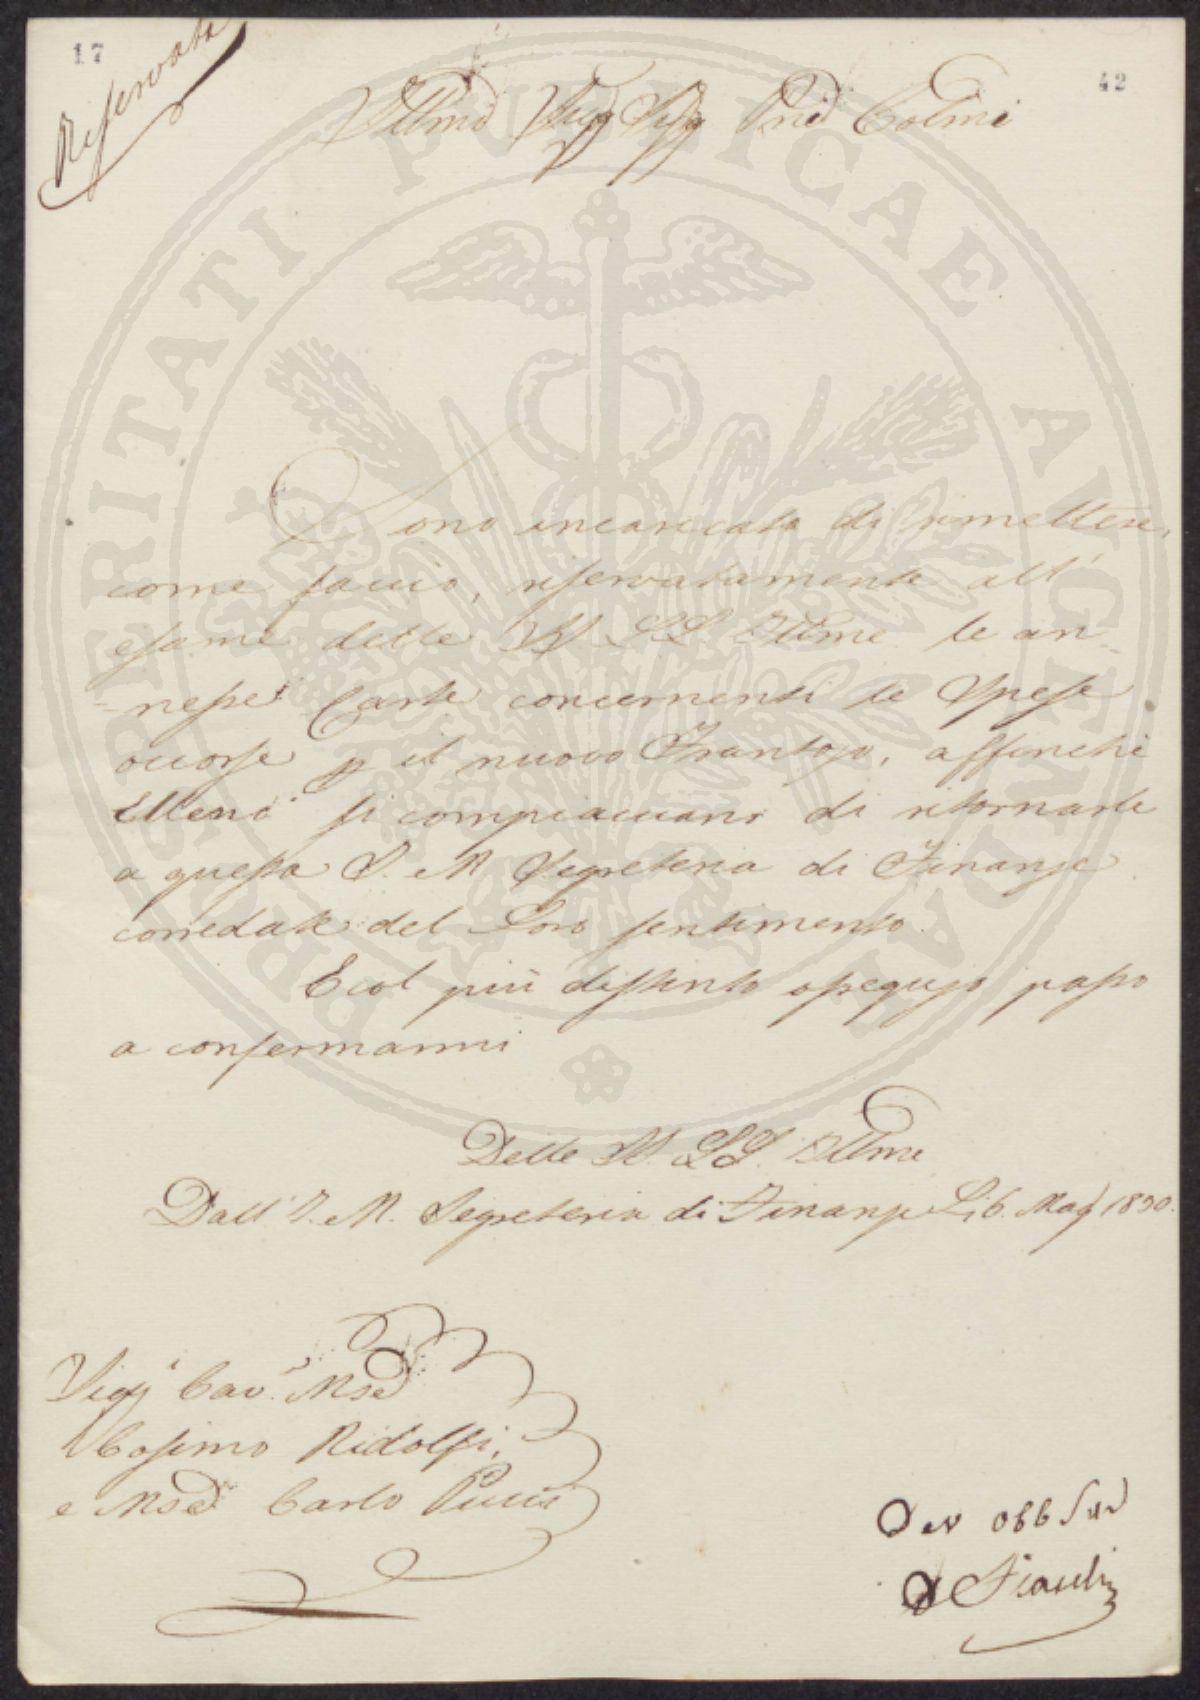 17
Riservata
42
Illmi Sigg Sigg Pni Colmi
Sono incaricato di rimettere,
come faccio, riservatamente all'
esame delle VV. SS. Illme le an=
=nesse Carte concernenti le Spese
occorse p il nuovo Frantojo, affinchè
Elleno si compiacciano di ritornarle
a questa I. e R. Segreteria di Finanze
corredate del Loro sentimento.
E col più distinto ossequio passo
a confermarmi
Delle VV. SS. Illme
Dall' I. e R. Segreteria di Finanze Li 6. Mag 1830.
Sigg Cav. Mse
Cosimo Ridolfi,
e Mse Carlo Pucci
Dev Obb
PROSPERITATI PUBLICAE AUGENDAE